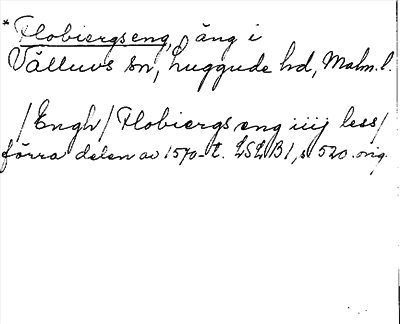 * Flobiergs eng, äng i
Välluvs sn, Luggude hd, Malm. l.
/Engh/ Flobiergs eng iiij less/
förra delen av 1570-t. LSLB 1, s 520. orig.